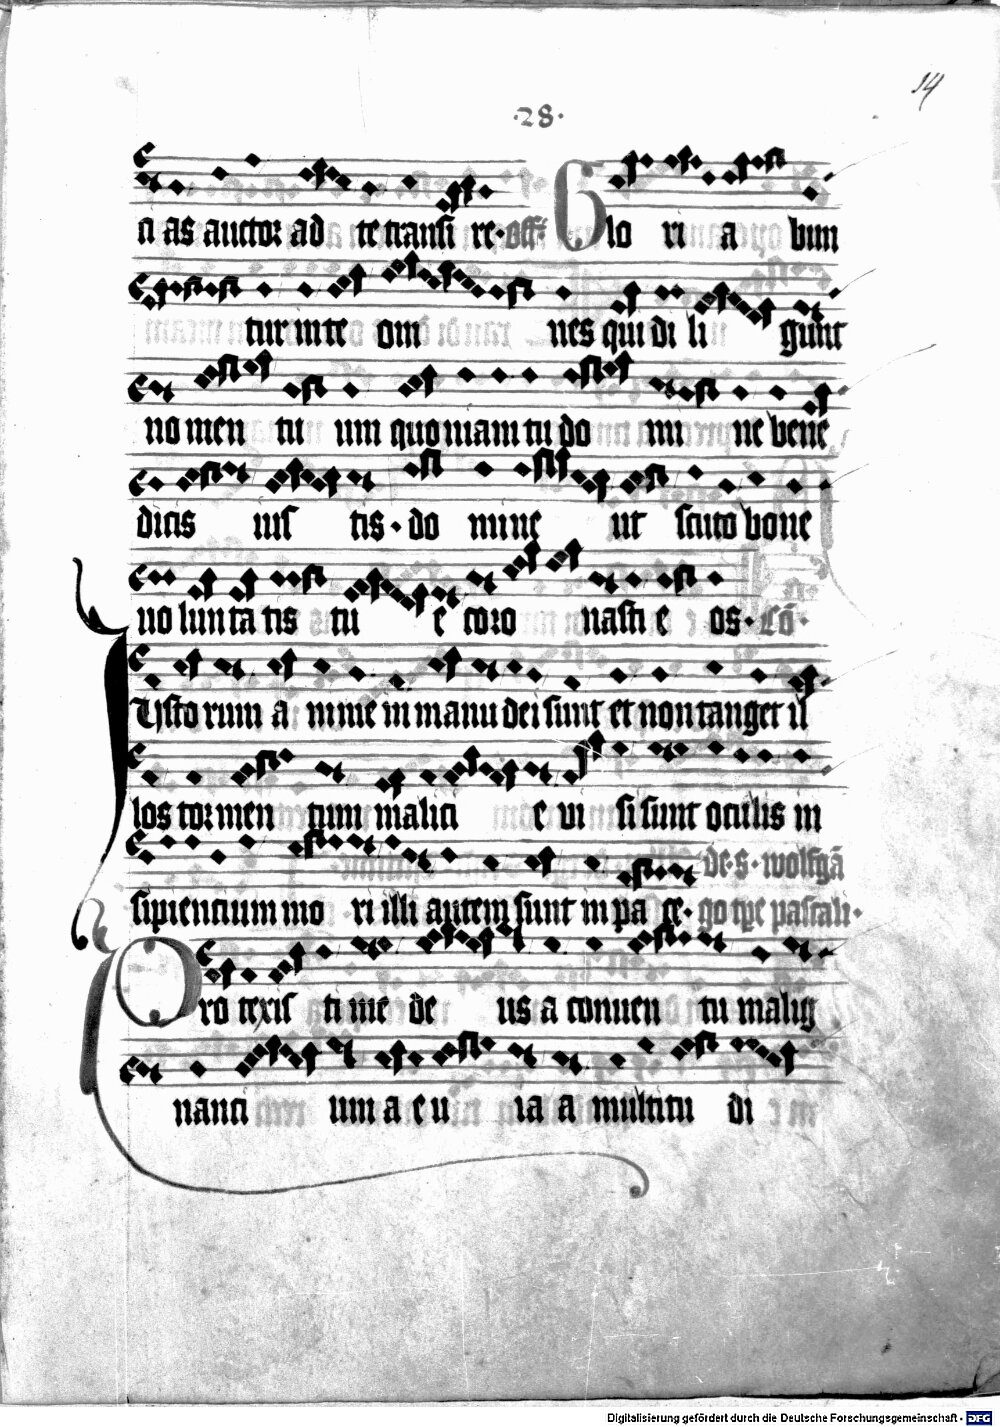 14
·28·
ci as auctor ad te transi re · Off: Glo ri a bun
tur in te om nes qui di li gunt
no men tu um quo niam tu do mi ne bene
dicis ius tis · do mine ut scuto bone
uo lun ta tis tu e coro nasti e os · Cō ·
Justo rum a nime in manu dei sunt et non tanget il
los tor men tum malici e vi si sunt oculis in
de · s · wolfgā
sipiencium mo ri illi autem sunt in pa ce · go tpe pascali ·
Pro texis ti me de us a conuen tu malig
nanci um a e u ia a multitu di
Digitalisierung gefördert durch die Deutsche Forschungsgemeinschaft - DFG